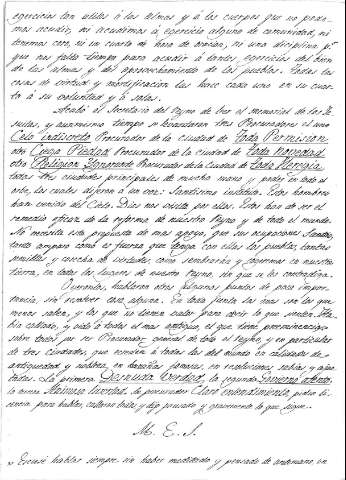 exercicios tan utiles á las almas y á los cuerpos que no pode-
mos acudir, ni acudimos á exercicio alguno de comunidad, ni
tenemos coro, ni un cuarto de hora de oracion, ni una disciplina pr.
que nos falta tiempo para acudir á tantos exercicios del bien
de las almas y del aprovechamiento de los pueblos. Todas las
cosas de virtud y mortificacion las hace cada uno en su cuar-
to á su voluntad y á solas.
Acabó el Secretario del Reyno de leer el memorial de los Je-
suitas, y al mismo tiempo se levantaron tres Procuradores el uno
Celo indiscreto Procurador de la ciudad de Toda Permision
otro Ciega Piedad Procurador de la ciudad de Toda Novedad
otro Religion Ignorante Procurador de la ciudad de Todo Heregia
todas tres ciudades principales de mucha mano y poder en aquel
orbe, las cuales dijeron á un voz: Santisimo instituto. Estos hombres
han venido del Cielo. Dios nos visita por ellos. Estos han de ser el
remedio eficaz de la reforma de nuestro Reyno y de todo el mundo.
No necesita esta propuesta de mas apoyo, que sus ocupaciones Santas,
tanto amparo como es fuerza que tenga con ellos los pueblos, tantas
semillas y cosecha de virtudes, como sembrarán y cogeremos en nuestra
tierra, en todos los lugares de nuestro Reyno, sin que se les contradiga.
hablaron otros algunos puntos de poca impor-
tancia, sin resolver cosa alguna. En toda junta los mas son los que
menos saben, y los que no tienen valor para decir lo que sienten. Ha-
bia callado, y oido á todos el mas antiguo, el que tiene preeminencia
sobre todos por ser Procurador general de todo el Reyno, y en particular
de tres Ciudades, que exceden á todas las del mundo en calidades de
antiguedad y nobleza, en hazañas famosas, en resoluciones sabias y ajus-
tadas. La primera Desnuda Verdad, la segunda Govierno atento,
la tercera su procurador Claro entendimiento, pidio li-
cencia para hablar, callaron todos y dijo pausado y gravemente lo que sigue.
M. E. S.
Escusé hablar siempre sin haber meditado y pensado de antemano, en